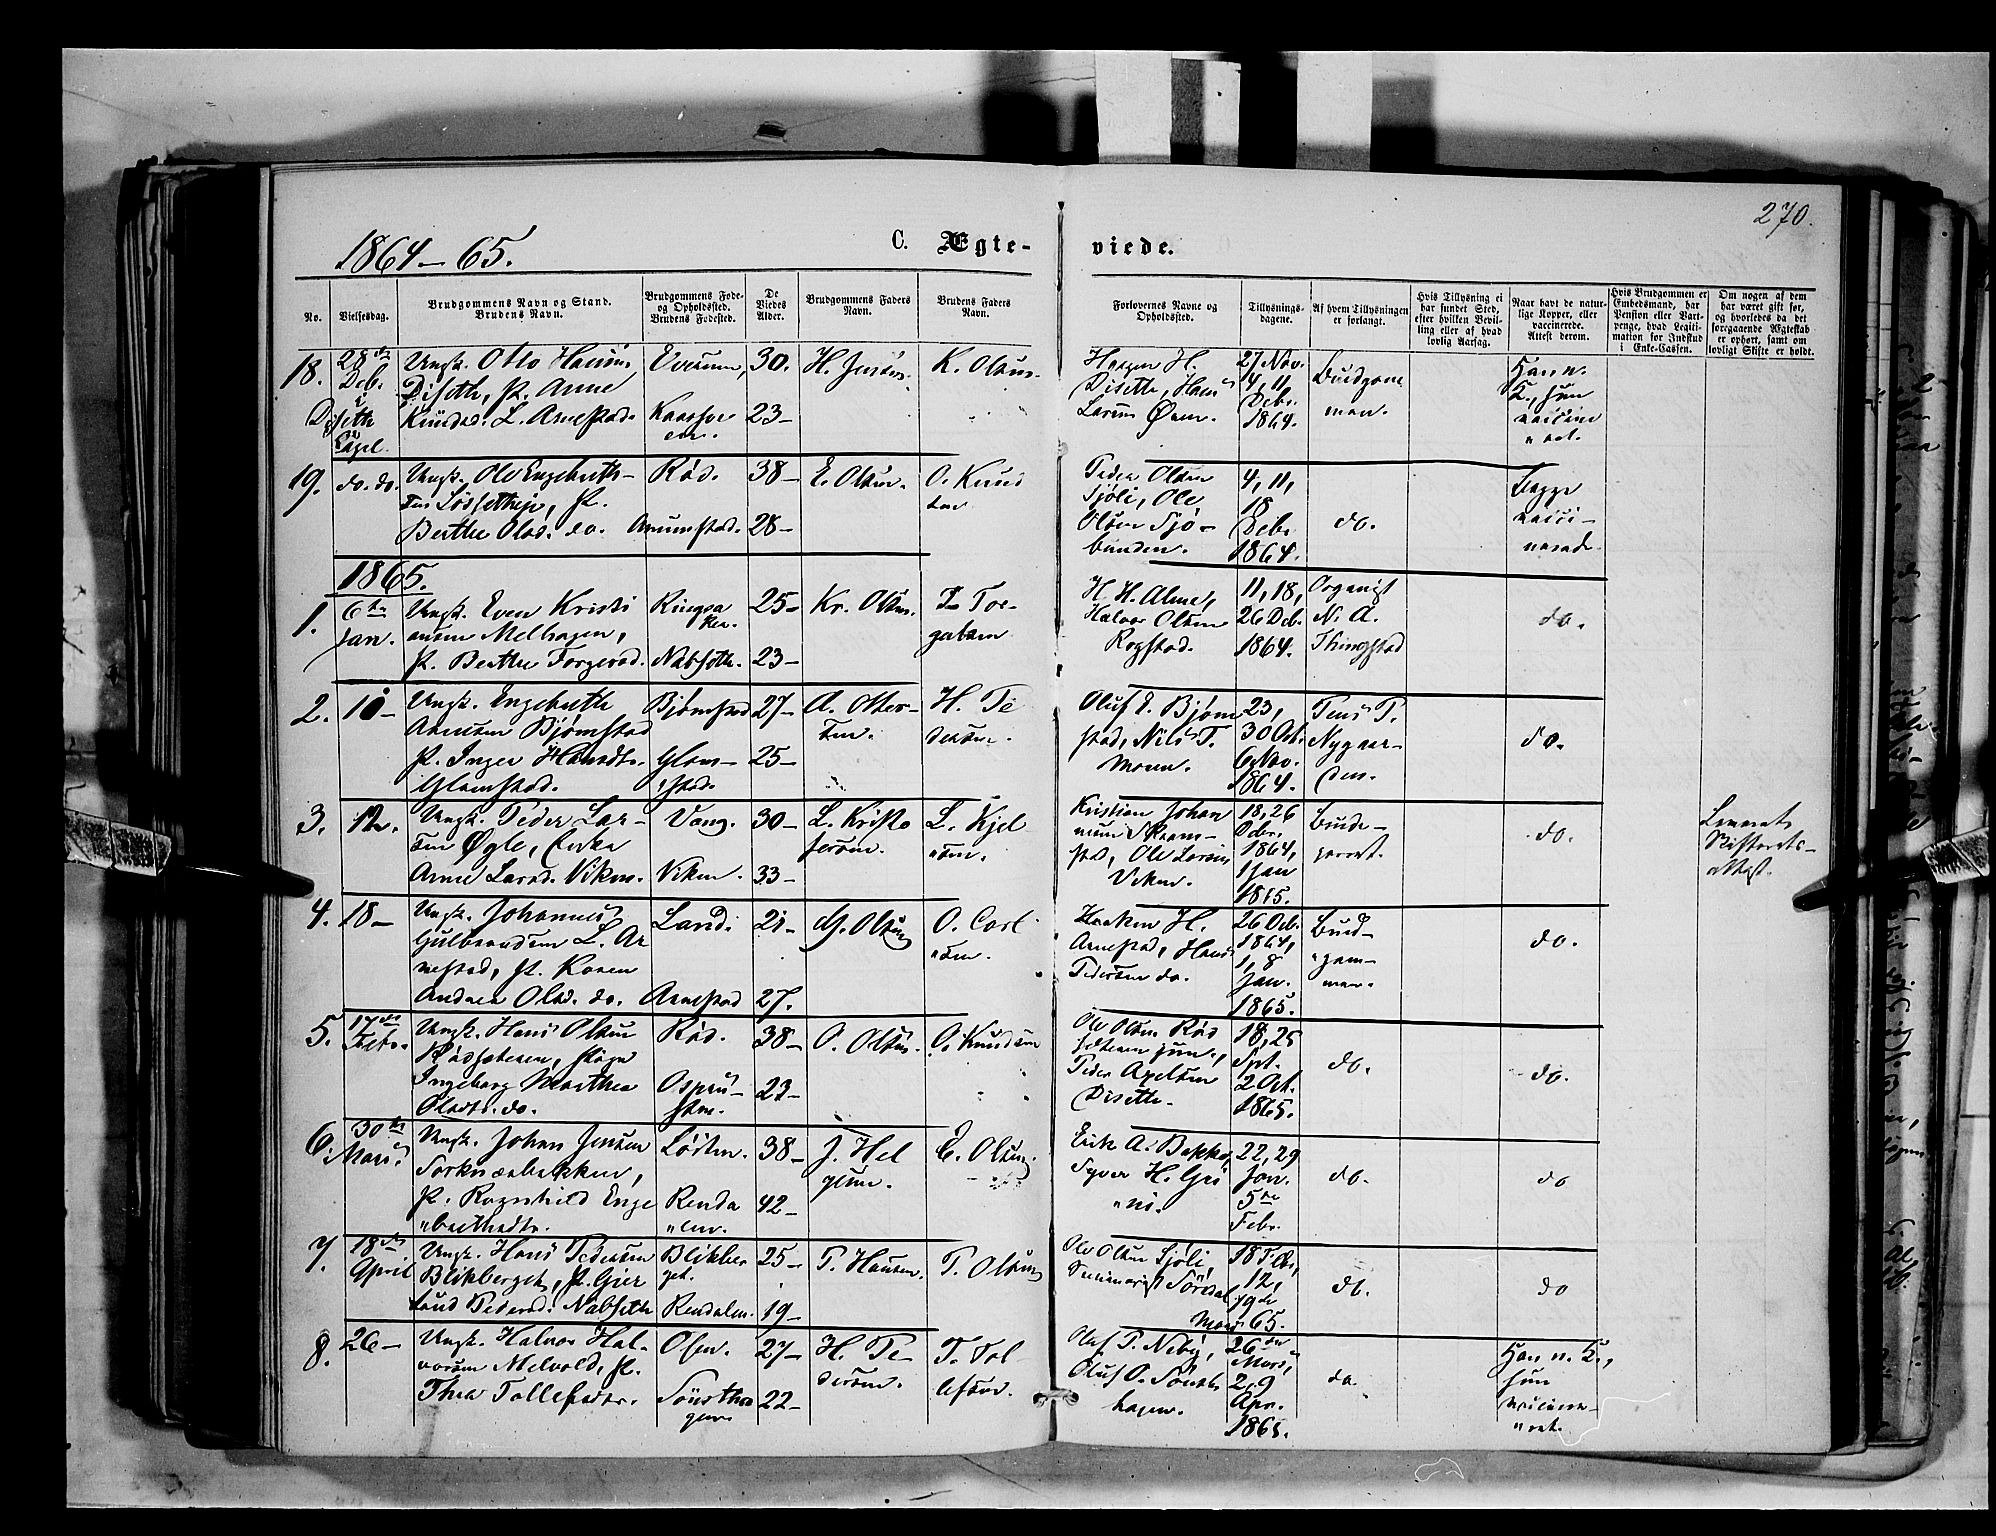 270.
1864-65.
C. Ægte-
viede.
No.
Vielsesdag.
Brudgommens Navn og Stand.
Brudens Navn.
Brudgommens Føde-
og Opholdssted.
Brudens Fødested.
De
Viedes
Alder.
Brudgommens Faders
Navn.
Brudens Faders
Navn.
Forlovernes Navne og
Opholdssted.
Tillysnings-
dagene.
Af hvem Tillysningen
er forlangt.
Hvis Tillysning ei
har fundet Sted,
efter hvilken Bevil-
ling eller af hvad
lovlig Aarsag.
Naar havt de natur-
lige Kopper, eller
vaccinerede.
Attest derom.
Hvis Brudgommen er
Embedsmand, har
Pension eller Vart-
penge, hvad Legiti-
mation for Indskud
i Enke-Cassen.
Om nogen af dem
har været gift før,
og hvorledes da det
foregaaende Ægteskab
er ophørt, samt om
lovligt Skifte er holdt.
18.
28de
Deb.
i
Diseth
Capel.
Ungk. Otto Hansen
Diseth, P. Anne
Knudsd. L. Arnestad.
30.
23-
H. Jensen.
K. Olsen.
Haagen H.
Diseth, Hans
Larsen Øren.
27 Nov.
4, 11
Debr.
1864.
Brudgom
men.
Han n.
K., hun
vaccine
ret.
19.
do. do.
Ungk. Ole Engebreths-
sen
P.
Berthe Olsd. do.
Rød.
Arnestad.
38-
28-
E. Olsen.
O. Knud
sen
Peder Olsen
Sjøli, Ole
Olsen Sjø-
bunden.
4, 11,
18
Debr.
1864.
do.
Begge
vacci-
nerede.
1865.
1.
6te
Jan.
Ungk. Even Kristi
ansen Melhagen,
P. Berthe Torgersd.
Ringsa
ker.
Nabseth.
25-
23-
Kr. Olsen.
T. Tor-
gersen
H. H. Alme,
Halvor Olsen
Rogstad.
11, 18,
26 Deb.
1864.
Organist
N. A.
Thingstad
do.
2.
10-
Ungk. Engebreth
Arnesen Bjørnstad
P. Inger Hansdt.
Glomstad.
Bjørnstad
Glom-
stad.
27-
25-
A. Olser-
sen.
H. Pe
dersen.
Oluf E. Bjørn
stad, Nils T.
Moren.
23,
30 Oct.
6 Nov.
1864.
Jens P.
Nygaar-
den.
do.
3.
12.
Ungk. Peder Lar-
sen Øgle, Enke
Anne Larsd. Viken.
Vang.
Viken.
30-
33-
L. Kristo
fersen.
L. Kjel
sen.
Kristian Johan
nesen Skram-
stad, Ole Larsen
Viken.
18, 26
Debr.
1864,
1 Jan
1865.
Brude-
parret.
do.
Skifterets-
attest.
4.
18-
Ungk. Johannes
Gulbrandsen L. Ar
nestad, P. Karen
Andrea Olsd. do.
Land.
Arnestad
21-
27.
G. Olsen
O. Carl
sen.
Haaken H.
Arnestad, Hans
Pedersen do.
26 Deb.
1864,
1, 8
Jan.
1865.
Brud-
gom-
men.
do.
5.
17de
Febr.
Ungk. Hans Olsen
Rødsæteren, Pige
Ingeborg Marthea
Olsdt. do.
Rød.
38-
23-
O. Olsen.
O. Knudsen
Ole Olsen Rød
sæteren jun.,
Peder Axelsen
Diseth.
18, 25
Sept.
2 Oct.
1865.
do.
do.
6.
30te
Mars.
Ungk. Johan Jensen
Torknæsbakken,
P. Ragnhild Enge
brethsdt.
Løiten.
Renda
len.
38-
42-
J. Hel
gesen.
E. Olsen.
Erik A. Bakke,
Syver H. Gri
ni.
22, 29
Jan.
5te
Febr.
do.
do
7.
18de
April
Ungk. Hans Pedersen
Blikberget, P. Gjer
trud Pedersd. Nabseth
Blikber
get.
Rendalen.
25-
19-
P. Hansen.
P. Olsen
Ole Olsen Sjøli,
Seminarist Sørdal
18 Febr.,
12,
19de
Mars 65.
do.
do
8.
26-
Ungk. Halvor Hal-
vorsen Melvold, P.
Thea Tollefsdt.
Osen.
27-
22-
H. Pe-
dersen.
T. Tol
lefsen.
Oluf P. Neby,
Oluf O. Sønst
hagen.
26de
Mars,
2, 9
Apr.
1865.
do.
Han n. K.,
hun
vaccine-
ret.